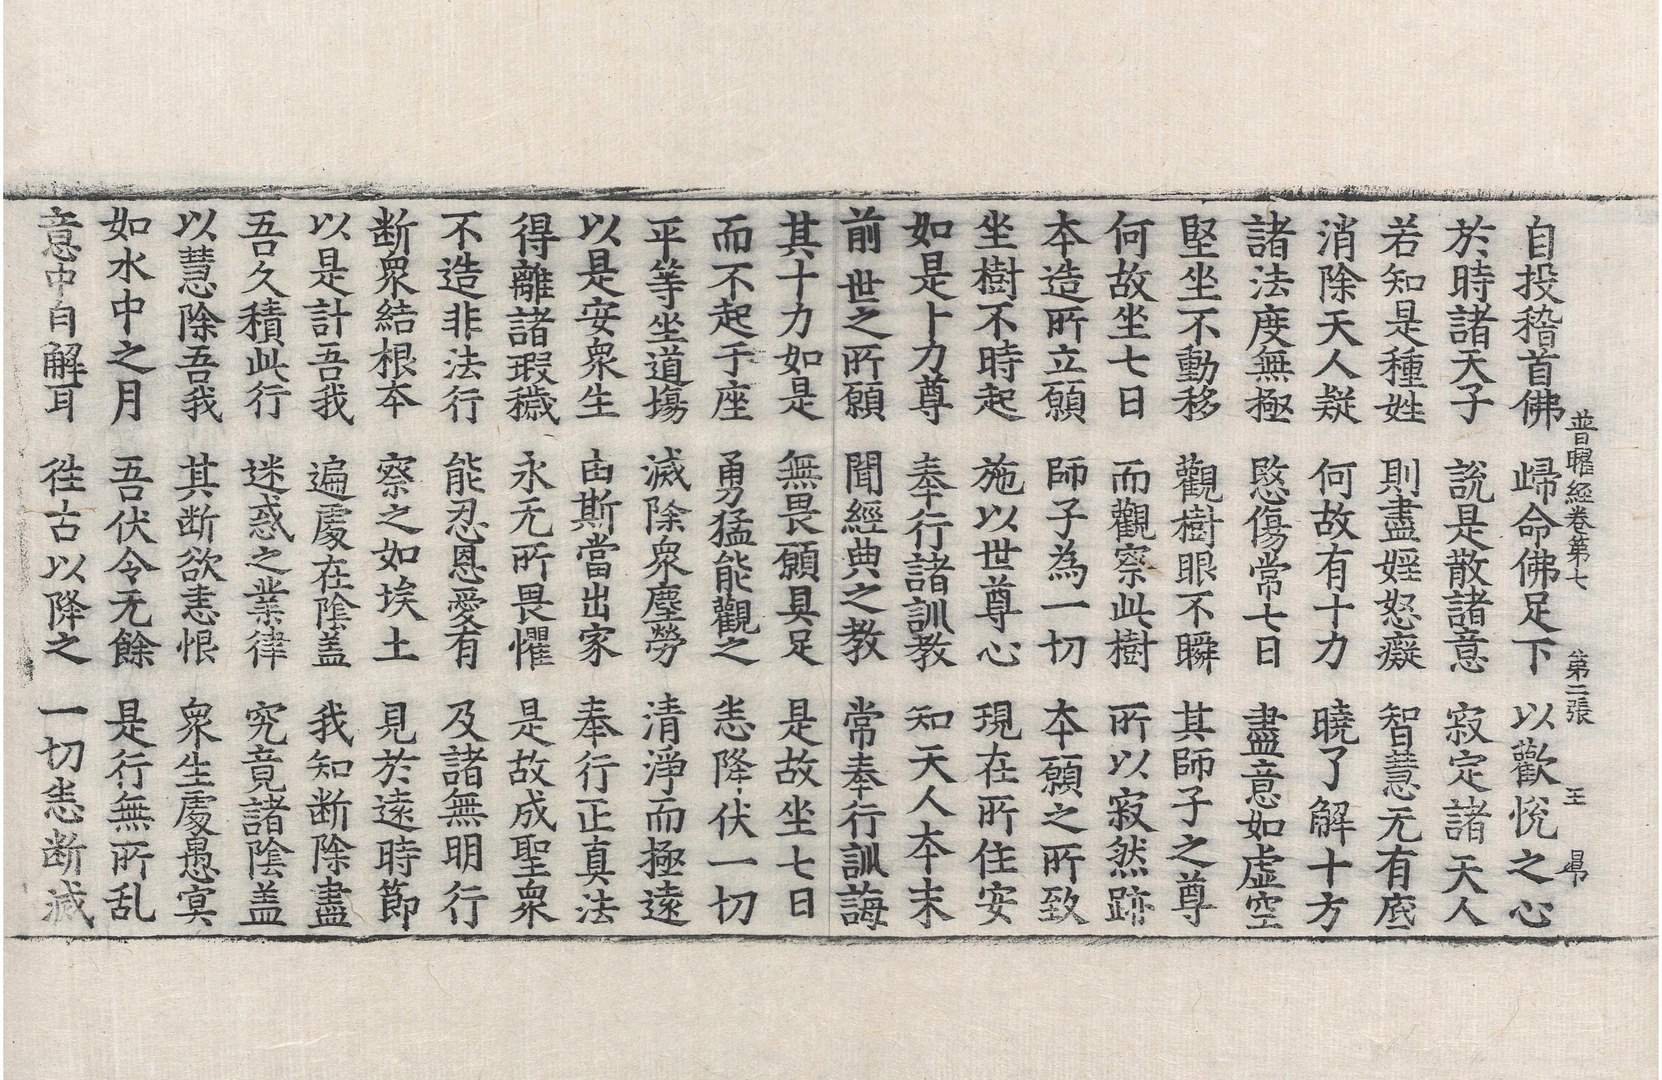 普曜經卷第七　第二張　王　昺
自投稽首佛　歸命佛足下　以歡悅之心
於時諸天子　說是散諸意　寂定諸天人
若知是種姓　則盡婬怒癡　智慧无有底
消除天人疑　何故有十力　曉了解十方
諸法度無極　愍傷常七日　盡意如虛空
堅坐不動移　觀樹眼不瞬　其師子之尊
何故坐七日　而觀察此樹　所以寂然跡
本造所立願　師子為一切　本願之所致
坐樹不時起　施以世尊心　現在所住安
如是十力尊　奉行諸訓教　知天人本末
前世之所願　聞經典之教　常奉行訓誨
其十力如是　無畏願具足　是故坐七日
而不起于座　勇猛能觀之　恚降伏一切
平等坐道場　滅除衆塵勞　清淨而極遠
以是安衆生　由斯當出家　奉行正真法
得離諸瑕穢　永无所畏懼　是故成聖衆
不造非法行　能忍恩愛有　及諸無明行
断衆結根本　察之如埃土　見於遠時節
以是計吾我　遍處在陰盖　我知断除盡
吾久積此行　迷惑之業律　究竟諸陰盖
以慧除吾我　其断欲恚恨　衆生處愚冥
如水中之月　吾伏令无餘　是行無所乱
意中自解耳　徃古以降之　一切恚断滅